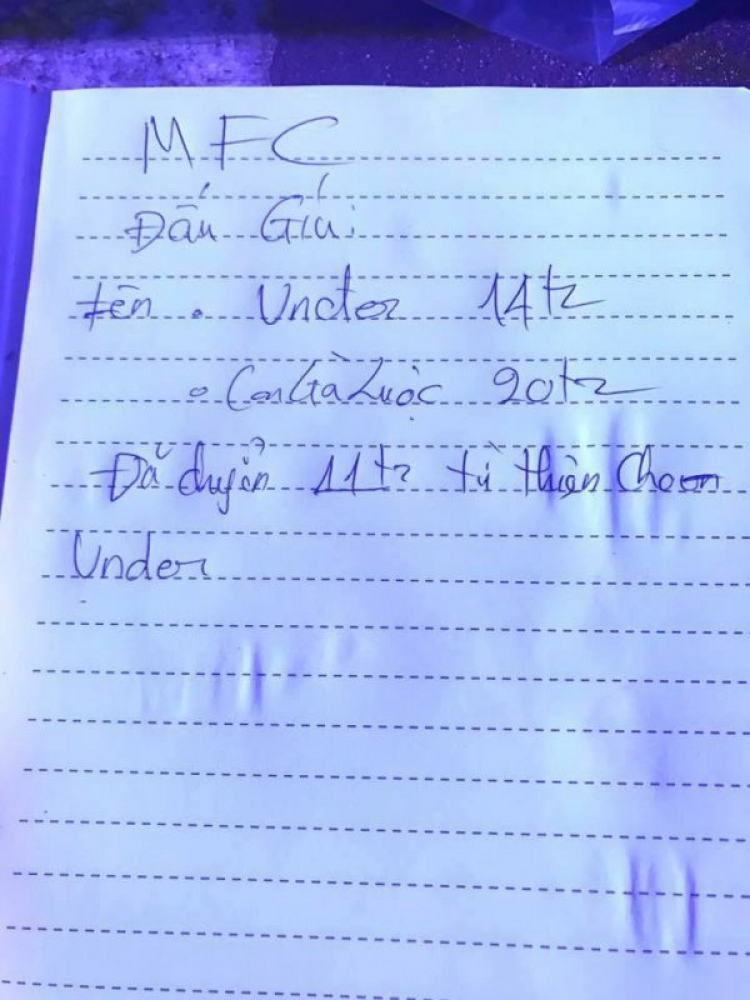 MFC
Đấu Giá:
tên. Under 14tr
• Con Gà Luộc 20tr
Đã chuyển 11tr từ thiện Choom
Under